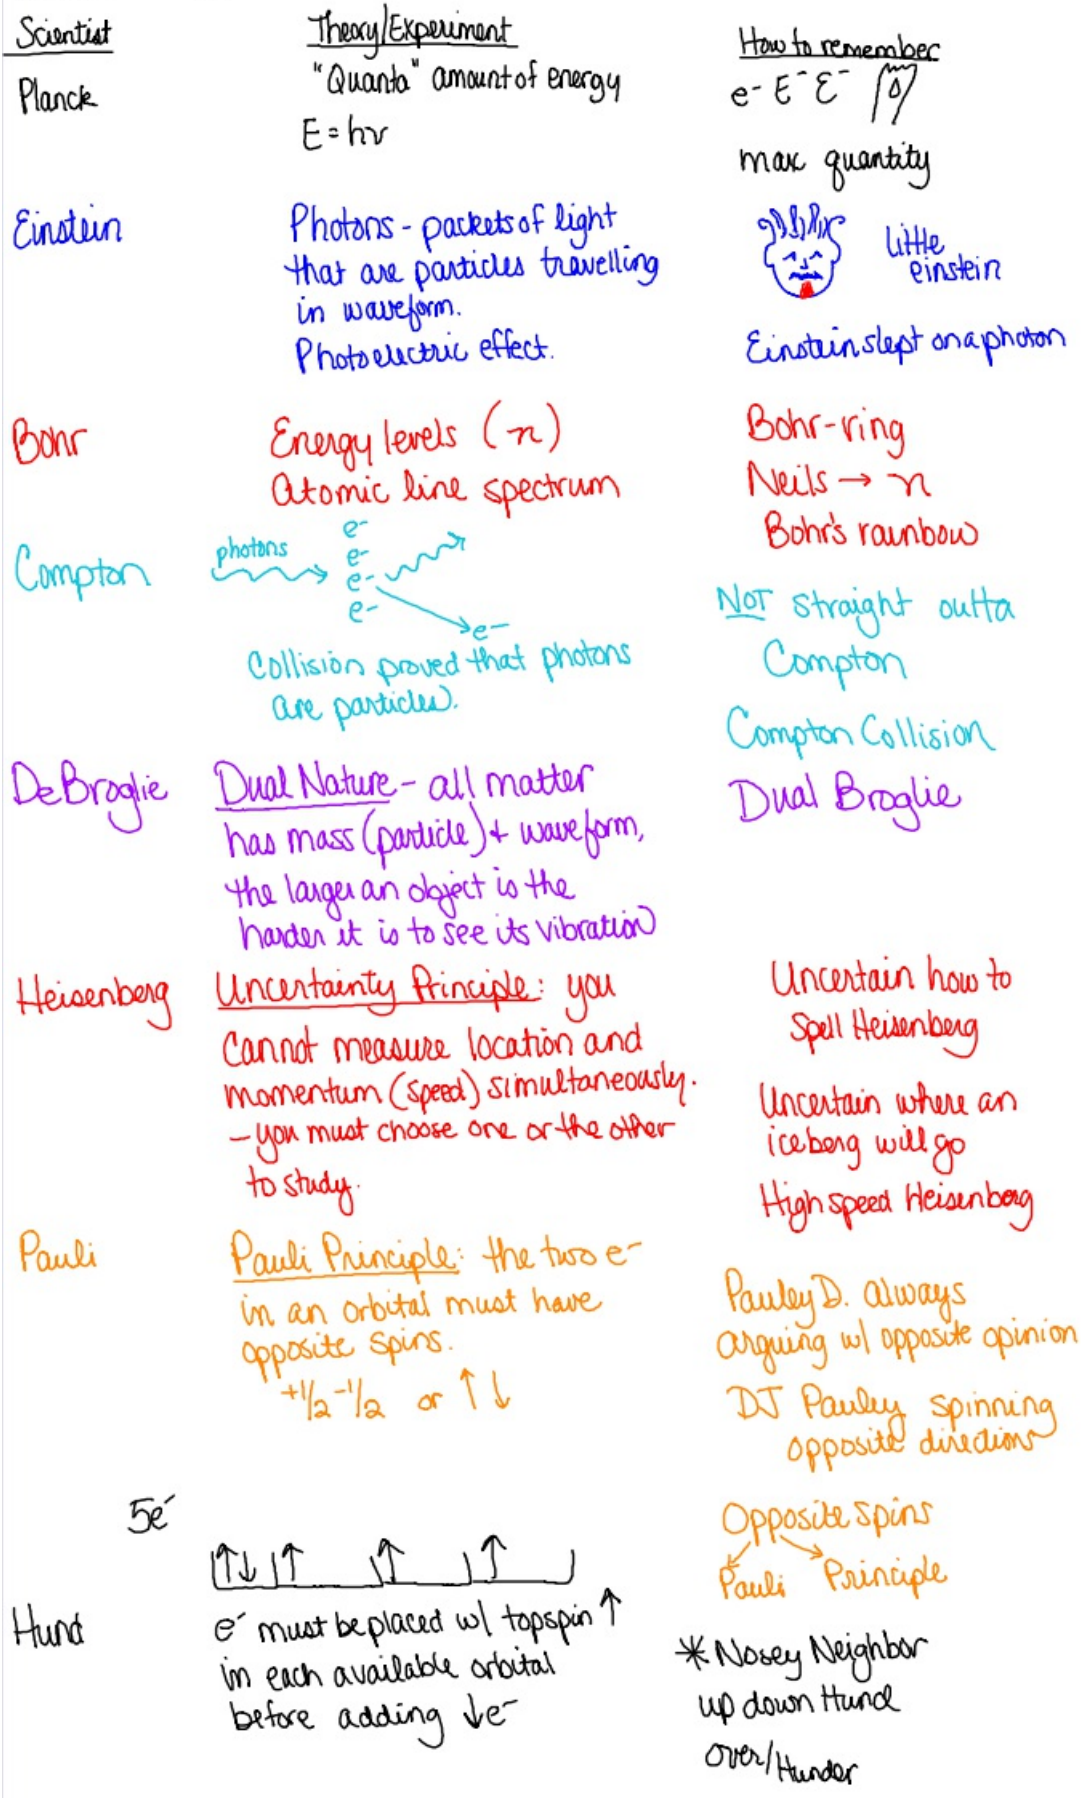 Scientist
Theory/Experiment
How to remember
Planck
"Quanta" amount of energy
E = hν
e- E- Ɛ-
max quantity
Einstein
Photons - packets of light
that are particles travelling
in waveform.
Photoelectric effect.
Little
einstein
Einstein slept on a photon
Bohr
Energy levels (n)
atomic line spectrum
Bohr-ring
Neils → n
Bohr's rainbow
Compton
photons
e-
e-
e-
e-
e-
Collision proved that photons
are particles.
NOT straight outta
Compton
Compton Collision
DeBroglie
Dual Nature - all matter
has mass (particle) + waveform,
the larger an object is the
harder it is to see its vibration
Dual Broglie
Heisenberg
Uncertainty Principle: you
cannot measure location and
momentum (speed) simultaneously.
- you must choose one or the other
to study.
Uncertain how to
spell Heisenberg
Uncertain where an
iceberg will go
High speed Heisenberg
Pauli
Pauli Principle: the two e-
in an orbital must have
opposite spins.
+1/2 -1/2 or ↑ ↓
Pauley D. always
arguing w/ opposite opinion
DJ Pauley spinning
opposite directions
Opposite spins
Pauli Principle
5e-
↑↓ ↑ ↑ ↑
Hund
e- must be placed w/ topspin ↑
in each available orbital
before adding ↓e-
* Nosey Neighbor
up down Hund
over/Hunder